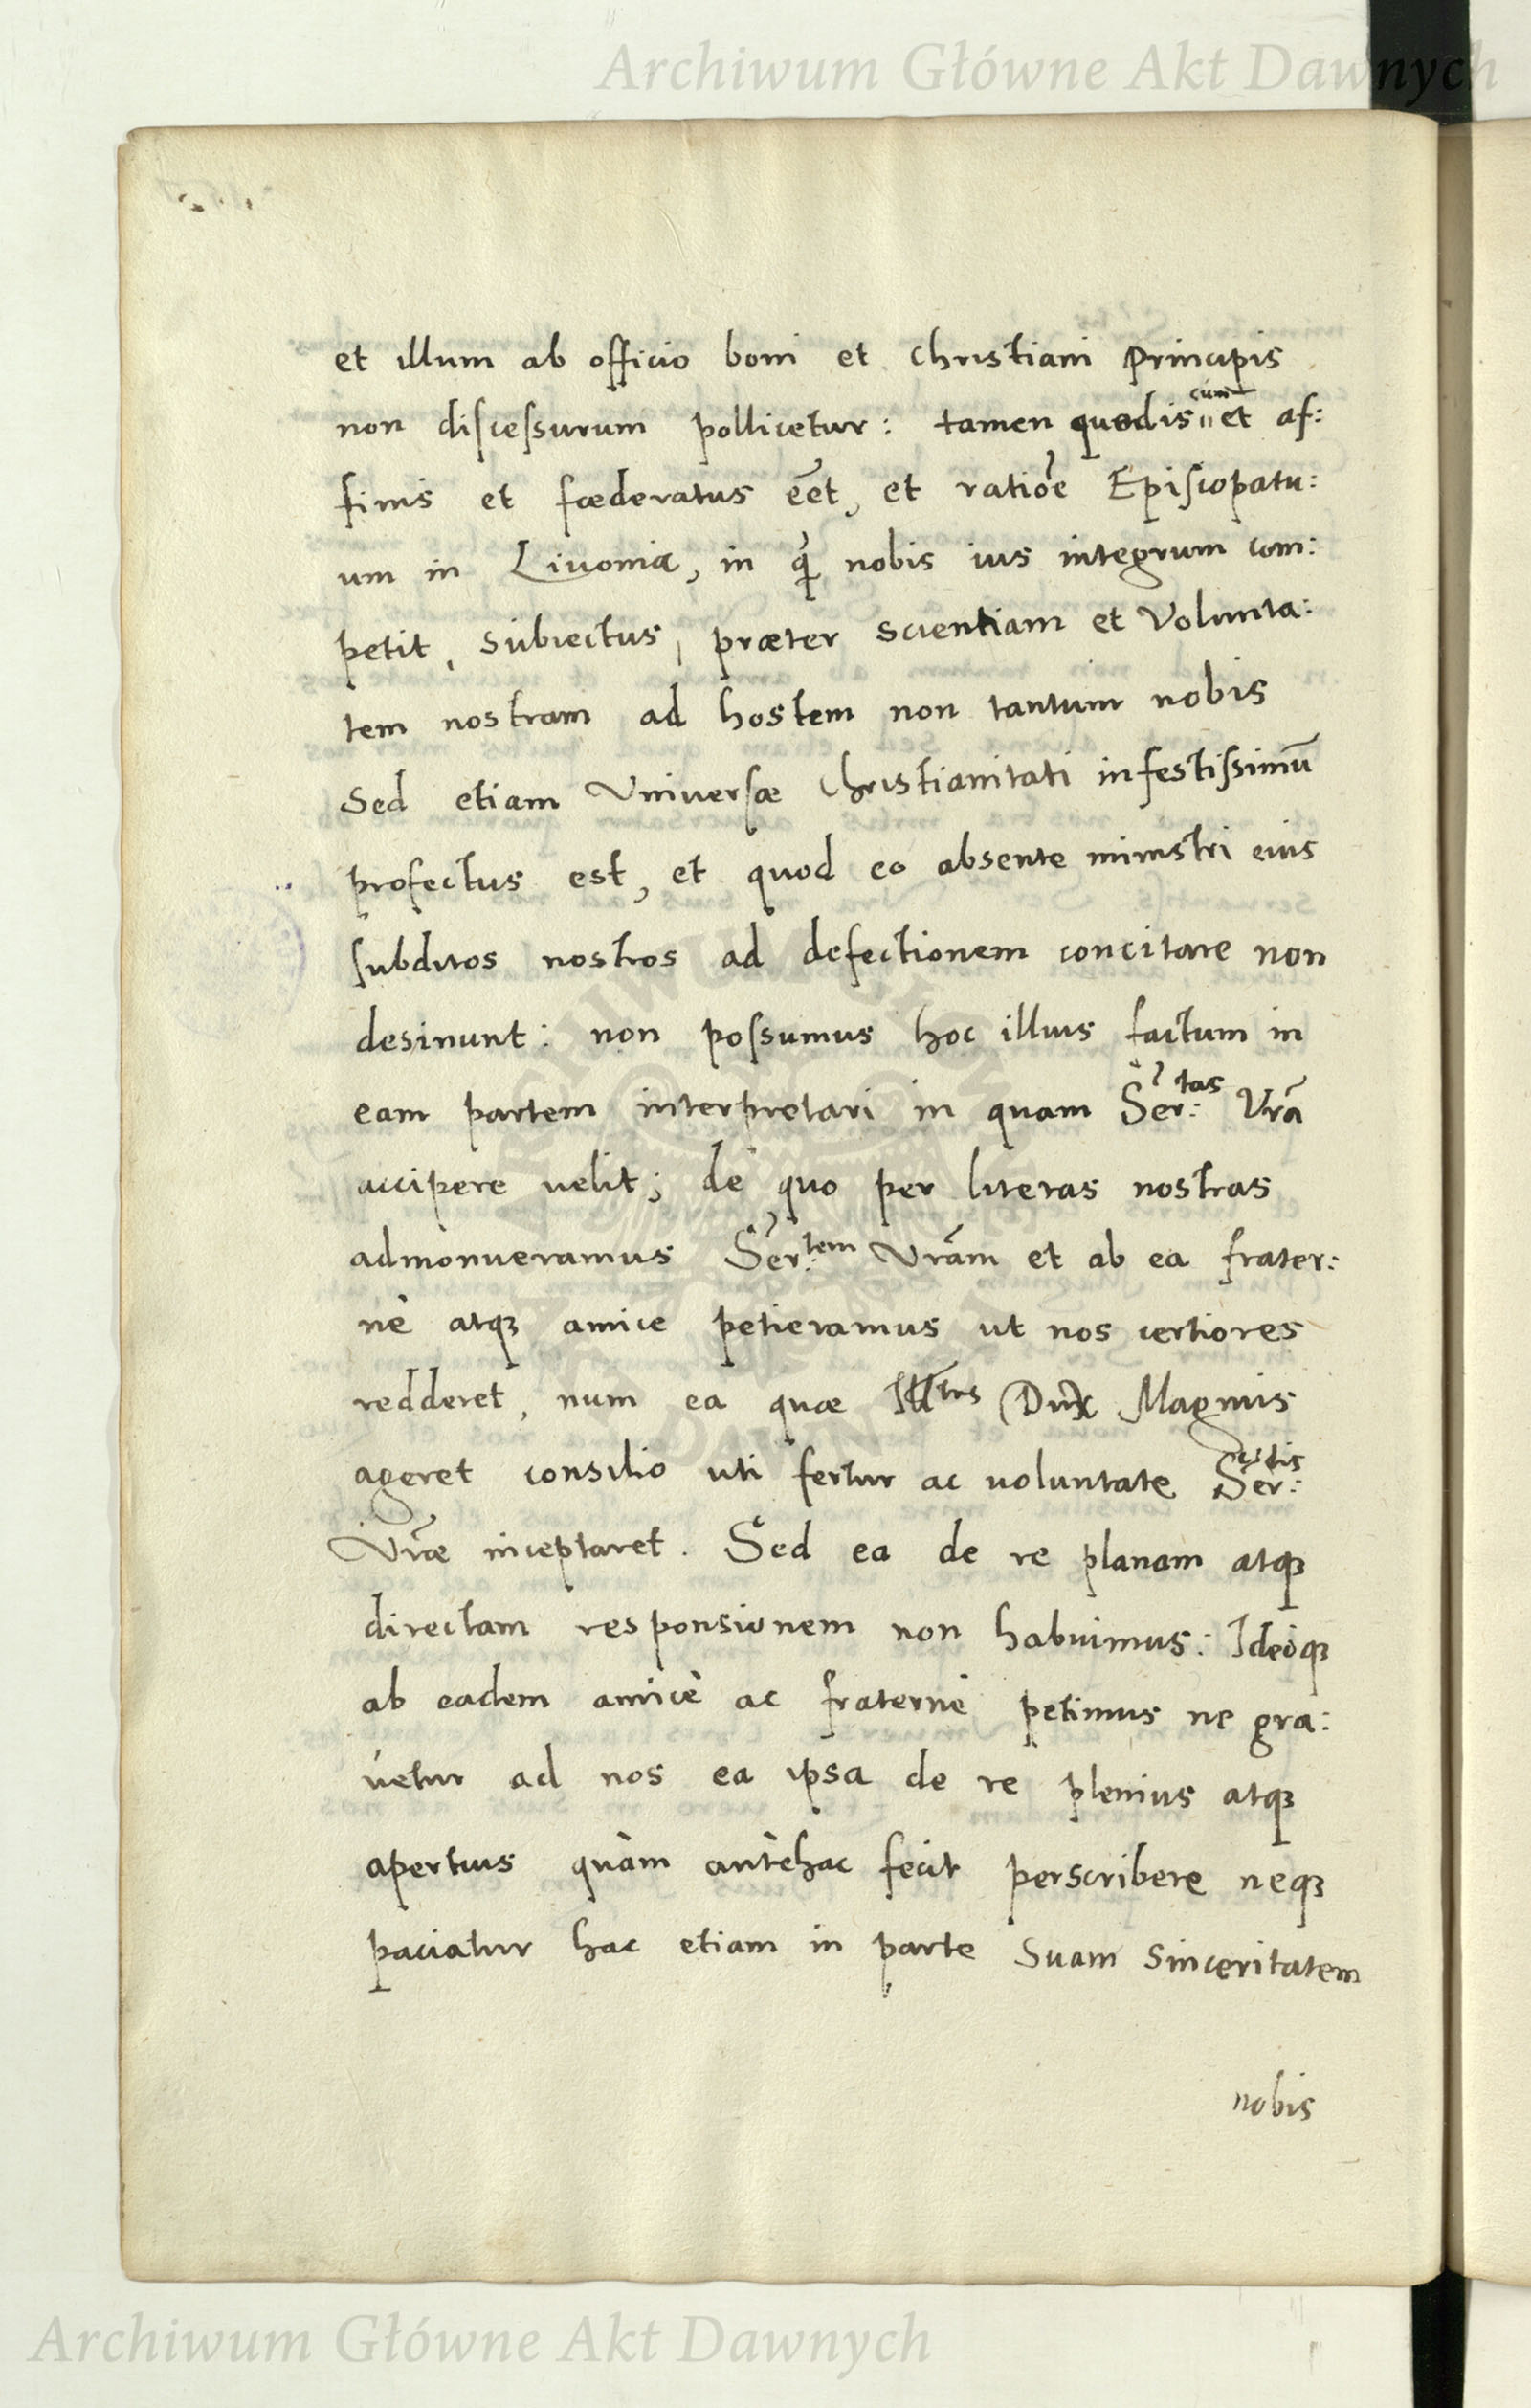 Archiwum Główne Akt Dawnych
et illum ab officio boni et Christiani Principis
non discessurum pollicetur: tamen quod is cum et af:
finis et fœderatus eēt, et ratiōe Episcopatu:
um in Livonia, in q̄ nobis ius integrum com:
petit, subiectus, præter scientiam et Volunta:
tem nostram ad hostem non tantum nobis
Sed etiam Universæ Christianitati infestissimū
profectus est, et quod eo absente ministri eius
subditos nostros ad defectionem concitare non
desinunt: non possumus hoc illius factum in
eam partem interpretari in quam Ser:tas Vrā
accipere uelit; de quo per literas nostras
admonueramus Ser:tem Vrām et ab ea frater:
nè atqꝫ amice petieramus ut nos certiores
redderet, num ea quæ Illtris Dux Magnus
ageret consilio uti fertur ac uoluntate Ser:tis
Vræ inceptaret. Sed ea de re planam atqꝫ
directam responsionem non habuimus: Ideoqꝫ
ab eadem amicè ac fraternè petimus ne gra:
uetur ad nos ea ipsa de re plenius atqꝫ
apertius quàm antehac fecit perscribere neqꝫ
paciatur hac etiam in parte Suam Sinceritatem
nobis
Archiwum Główne Akt Dawnych